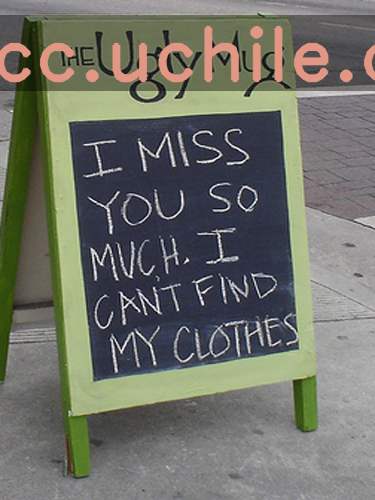 cc.uchile.c
THE Ugly Mug
I MISS
YOU SO
MUCH. I
CAN'T FIND
MY CLOTHES